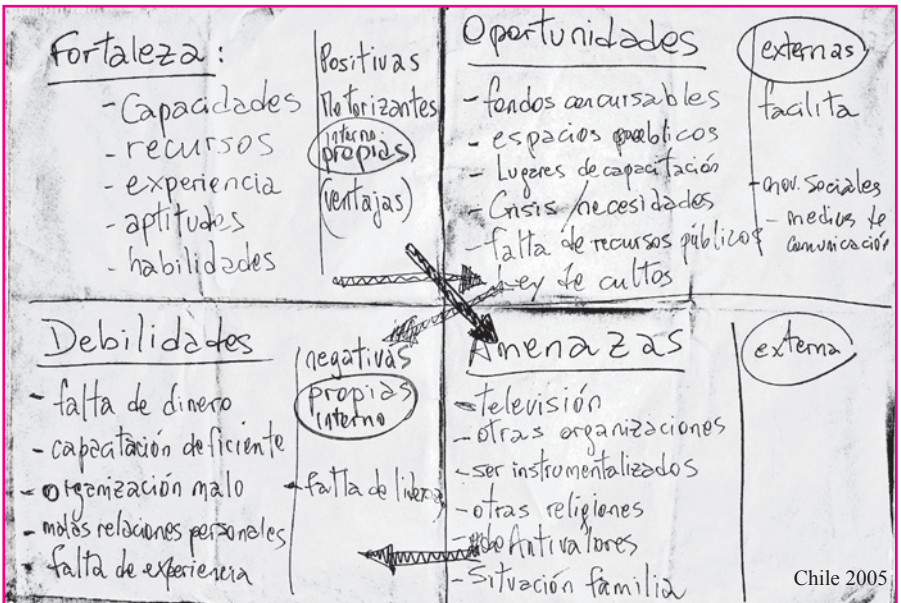 Fortaleza:
- Capacidades
- recursos
- experiencia
- aptitudes
- habilidades
Positivas
Motorizantes
interno
propias
(ventajas)
Oportunidades
- fondos concursables
- espacios públicos
- Lugares de capacitación
- Crisis/necesidades
- falta de recursos públicos
- Ley de cultos
externas
facilita
- mov. Sociales
- medios de
comunicación
Debilidades
- falta de dinero
- capacitación deficiente
- organización malo
- malas relaciones personales
- falta de experiencia
negativas
propias
interno
- falta de
Amenazas
- televisión
- otras organizaciones
- ser instrumentalizados
- otras religiones
- Antivalores
- Situación familia
externa
Chile 2005